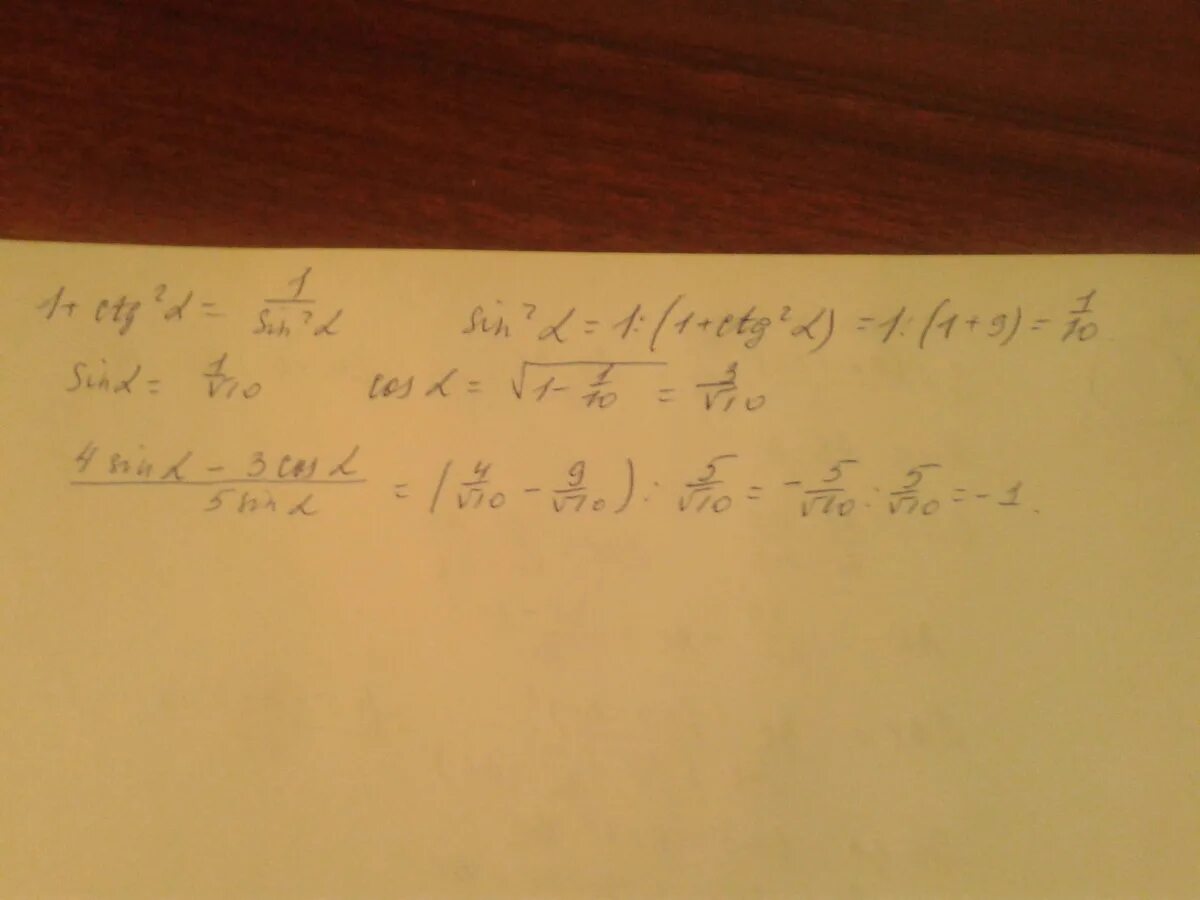 1+ctg²α = 1/sin²α    sin²α = 1:(1+ctg²α) = 1:(1+9) = 1/10
sinα = 1/√10    cosα = √(1-1/10) = 3/√10
(4sinα - 3cosα)/(5sinα) = (4/√10 - 9/√10) : 5/√10 = -5/√10 : 5/√10 = -1.